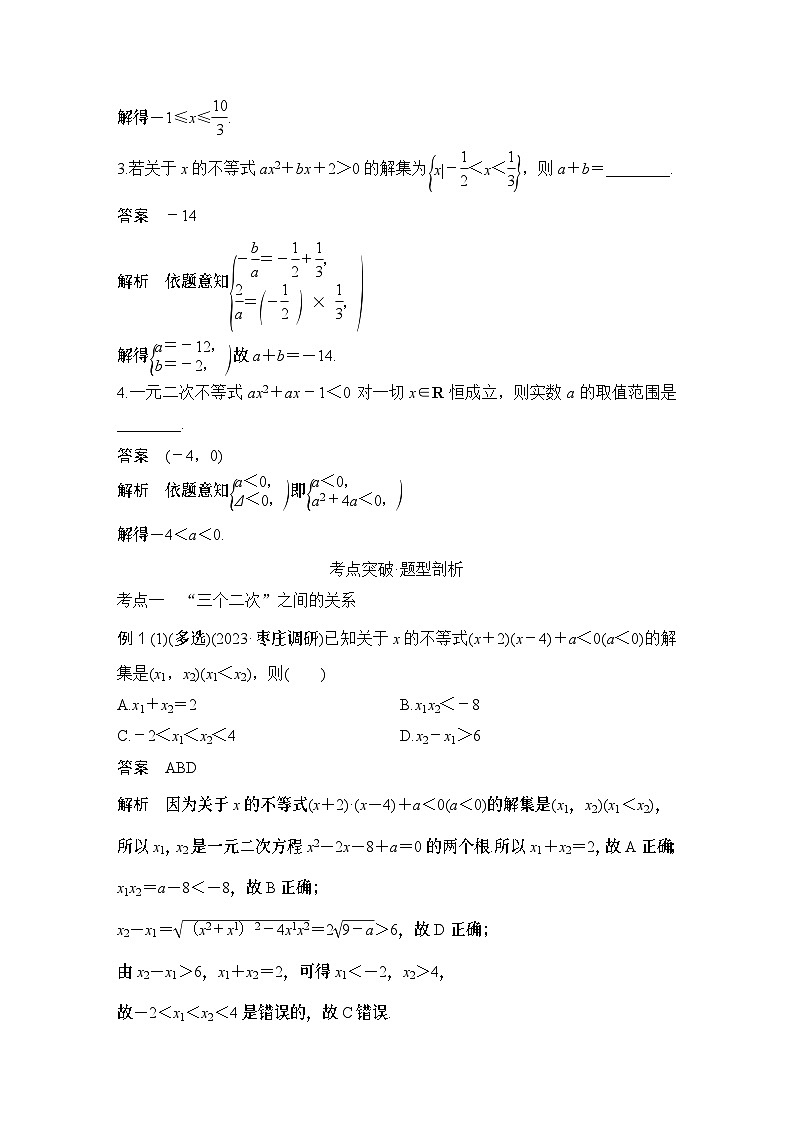 解得－1≤x≤10/3.
3.若关于x的不等式ax²＋bx＋2＞0的解集为{x|－1/2＜x＜1/3}，则a＋b＝________.
答案　－14
解析　依题意知{－b/a＝－1/2＋1/3，
2/a＝(－1/2)×1/3，)
解得{a＝－12，b＝－2，)故a＋b＝－14.
4.一元二次不等式ax²＋ax－1＜0对一切x∈R恒成立，则实数a的取值范围是
________.
答案　(－4，0)
解析　依题意知{a＜0，Δ＜0，)即{a＜0，a²＋4a＜0，)
解得－4＜a＜0.
考点突破·题型剖析
考点一　“三个二次”之间的关系
例1 (1)(多选)(2023·枣庄调研)已知关于x的不等式(x＋2)(x－4)＋a＜0(a＜0)的解
集是(x₁，x₂)(x₁＜x₂)，则(　　)
A.x₁＋x₂＝2　B.x₁x₂＜－8
C.－2＜x₁＜x₂＜4　D.x₂－x₁＞6
答案　ABD
解析　因为关于x的不等式(x＋2)·(x－4)＋a＜0(a＜0)的解集是(x₁，x₂)(x₁＜x₂)，
所以x₁，x₂是一元二次方程x²－2x－8＋a＝0的两个根.所以x₁＋x₂＝2，故A正确；
x₁x₂＝a－8＜－8，故B正确；
x₂－x₁＝√(（x²＋x¹）²－4x¹x²)＝2√(9－a)＞6，故D正确；
由x₂－x₁＞6，x₁＋x₂＝2，可得x₁＜－2，x₂＞4，
故－2＜x₁＜x₂＜4是错误的，故C错误.